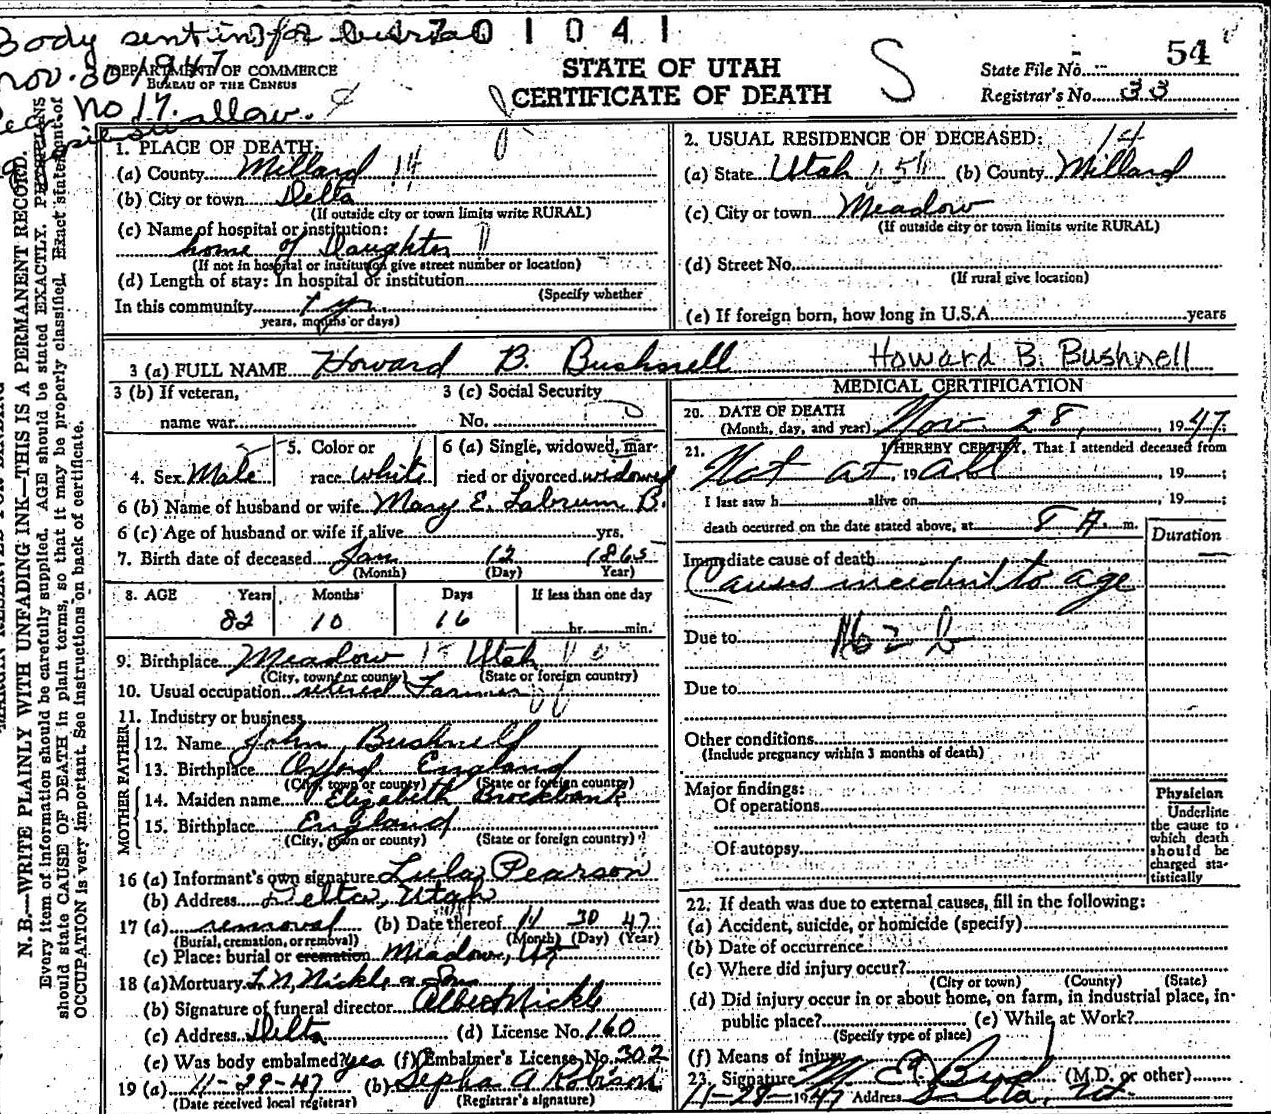 Body sent in for burial 701041
Nov. 30 1947
DEPARTMENT OF COMMERCE
BUREAU OF THE CENSUS
No 17.
STATE OF UTAH
CERTIFICATE OF DEATH
S
54
State File No.
Registrar's No. 33
1. PLACE OF DEATH:
(a) County Millard 14
(b) City or town Delta
(If outside city or town limits write RURAL)
(c) Name of hospital or institution:
home of Daughter
(If not in hospital or institution give street number or location)
(d) Length of stay: In hospital or institution
(Specify whether
In this community 1 yr.
years, months or days)
2. USUAL RESIDENCE OF DECEASED: 14
(a) State Utah (b) County Millard
(c) City or town Meadow
(If outside city or town limits write RURAL)
(d) Street No.
(If rural give location)
(e) If foreign born, how long in U.S.A. years
3 (a) FULL NAME Howard B. Bushnell Howard B. Bushnell
3 (b) If veteran,
name war
3 (c) Social Security
No.
4. Sex Male
5. Color or
race white
6 (a) Single, widowed, mar-
ried or divorced widowed
6 (b) Name of husband or wife Mary E. Labrum B.
6 (c) Age of husband or wife if alive yrs.
7. Birth date of deceased Jan 12 1865
(Month) (Day) Year)
8. AGE Years Months Days If less than one day
82 10 16 hr. min.
9. Birthplace Meadow Utah
(City, town or county) (State or foreign country)
10. Usual occupation retired Farmer
11. Industry or business
FATHER
12. Name John Bushnell
13. Birthplace Oxford England
(City, town or county) (State or foreign country)
MOTHER
14. Maiden name Elizabeth Brockbank
15. Birthplace England
(City, town or county) (State or foreign country)
16 (a) Informant's own signature Lula Pearson
(b) Address Delta, Utah
17 (a) removal (b) Date thereof 11 30 47
(Burial, cremation, or removal) (Month) (Day) (Year)
(c) Place: burial or cremation Meadow, Ut
18 (a) Mortuary T. N. Nickle & Son
(b) Signature of funeral director Albert Nickle
(c) Address Delta (d) License No. 160
(e) Was body embalmed? yes (f) Embalmer's License No. 302
19 (a) 11-29-47 (b) Sepha A Robison
(Date received local registrar) (Registrar's signature)
MEDICAL CERTIFICATION
20. DATE OF DEATH
(Month, day, and year) Nov. 28, 1947;
21. I HEREBY CERTIFY, That I attended deceased from
Not at 19 All to , 19 ;
I last saw h alive on , 19 ;
death occurred on the date stated above, at 8 A. m.
Duration
Immediate cause of death
Causes incident to age
Due to 162 b
Due to
Other conditions
(Include pregnancy within 3 months of death)
Major findings:
Of operations
Of autopsy
Physician
Underline
the cause to
which death
should be
charged sta-
tistically
22. If death was due to external causes, fill in the following:
(a) Accident, suicide, or homicide (specify)
(b) Date of occurrence
(c) Where did injury occur?
(City or town) (County) (State)
(d) Did injury occur in or about home, on farm, in industrial place, in
public place? (e) While at Work?
(Specify type of place)
(f) Means of injury
23. Signature M. E. Bird (M.D. or other)
11-28-1947 Address Delta, Ut.
N. B.—WRITE PLAINLY WITH UNFADING INK—THIS IS A PERMANENT RECORD.
Every item of information should be carefully supplied. AGE should be stated EXACTLY. PHYSICIANS
should state CAUSE OF DEATH in plain terms, so that it may be properly classified. Exact statement of
OCCUPATION is very important. See instructions on back of certificate.